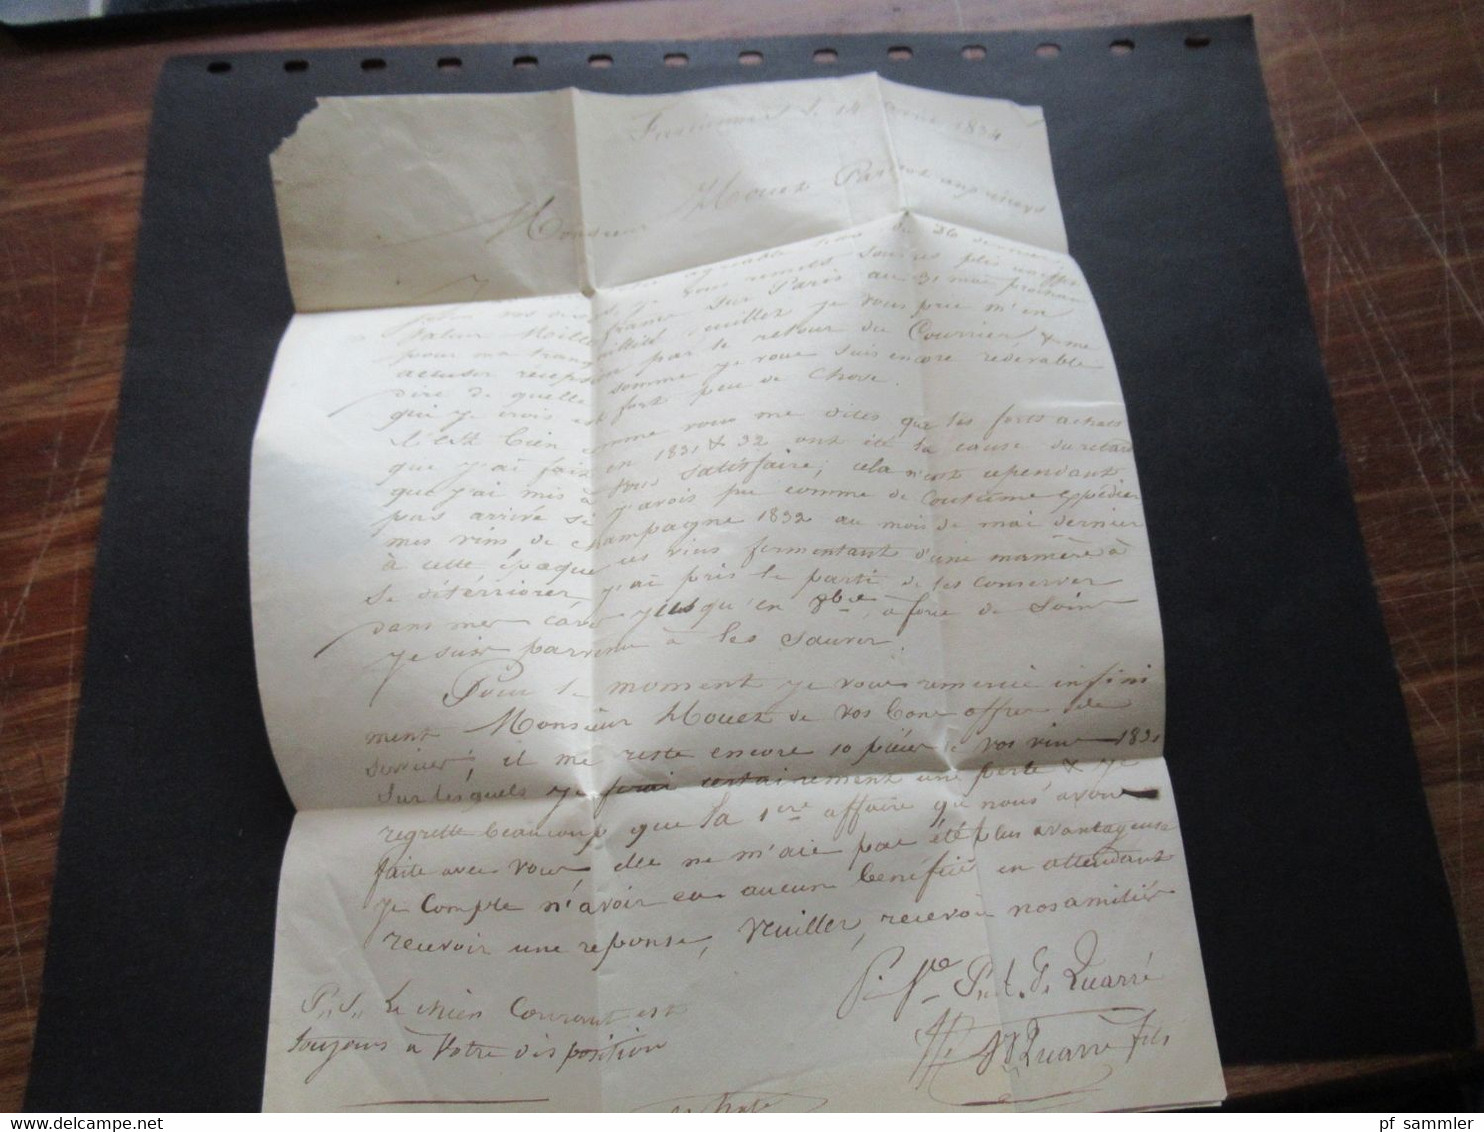 le 14 1834
Monsieur Mouez
du 26 dernier
je vous remets sous ce pli
valeur Mille francs sur Paris au 31 mai prochain
pour ma tranquillité veuillez je vous prie m'en
accuser reception par le retour du Courrier & me
dire de quelle somme je vous suis encore redevable
qui je crois est fort peu de Chose.
C'est bien comme vous me dites que les forts achats
que j'ai fait en 1831 & 32 ont été la cause du retard
que j'ai mis à vous satisfaire; cela n'est cependant
pas arrivé si j'avois pu comme de Coutume expédier
mes vins de champagne 1832 au mois de mai dernier
à cette époque ces vins fermentant d'une manière à
se détériorer j'ai pris le parti de les conserver
dans mes caves jusqu'en 8bre, à force de Soins
je suis parvenu à les sauver.
Pour le moment je vous remercie infini
ment Monsieur Mouez de vos bons offres de
service; il me reste encore 10 pièces de vos vins 1831
sur lesquels je ferai certainement une perte & je
regrette beaucoup que la 1ere affaire que nous avons
faite avec vous elle ne m'aie pas été plus avantageuse
je Compte n'avoir eu aucun bénéfice en attendant
recevoir une reponse, veuillez recevoir nos amitiés
P. Ve Quarré
Quarré fils
P.S. Le chien Courant est
toujours à Votre disposition
pf sammler